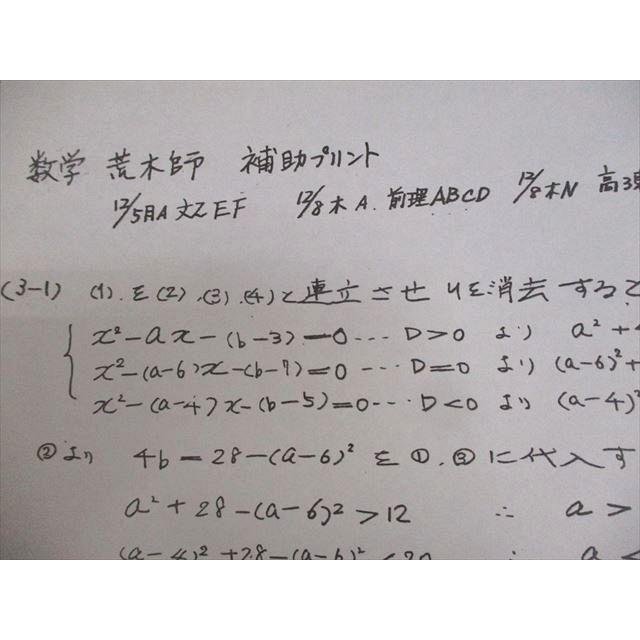 数学 荒木師 補助プリント
12/5月A 文Z EF 12/8木 A. 前理ABCD 12/8木N 高3東
(3-1) (1).を(2).(3).(4)と連立させyを消去すると
x²-ax-(b-3)=0… D>0 より a²+4
x²-(a-6)x-(b-7)=0 … D=0 より (a-6)²+
x²-(a-4)x-(b-5)=0… D<0 より (a-4)²
②より 4b=28-(a-6)² を①.③に代入す
a²+28-(a-6)²>12 ∴ a>
(a-4)²+28-(a-6)²<20 ∴ a<